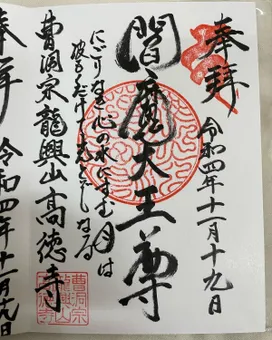 奉拝
令和四年十一月十九日
閻魔大王尊
にごりなき心の水にすむ月は
波もくだけて光とぞなる
曹洞宗龍興山高徳寺
曹洞宗
龍興山
高徳寺
奉拝
令和四年十一月十九日